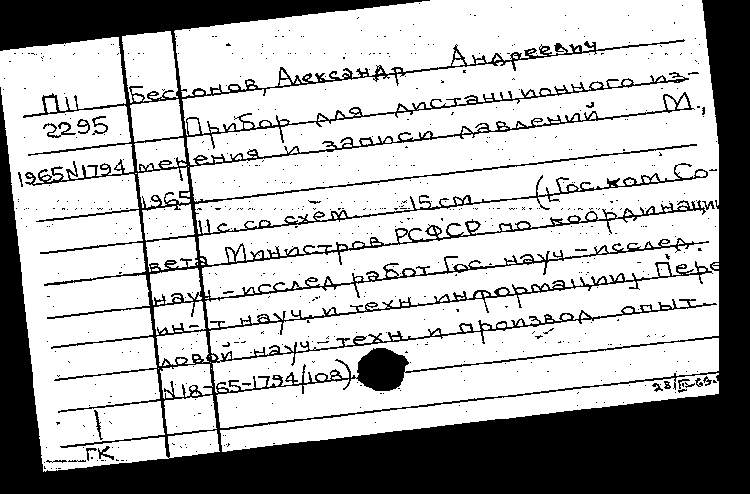 П11 Бессонов, Александр Андреевич
2295 Прибор для дистанционного из-
1965N1794 мерения и записи давлений М.,
1965.
11с. со схем. 15 см. (Гос. ком. Со-
вета Министров РСФСР по координации
науч.-исслед работ Гос. науч-исслед.
ин-т науч. и техн информации, Пере
довой науч.-техн. и производ опыт.
N18-65-1794/108)
ГК